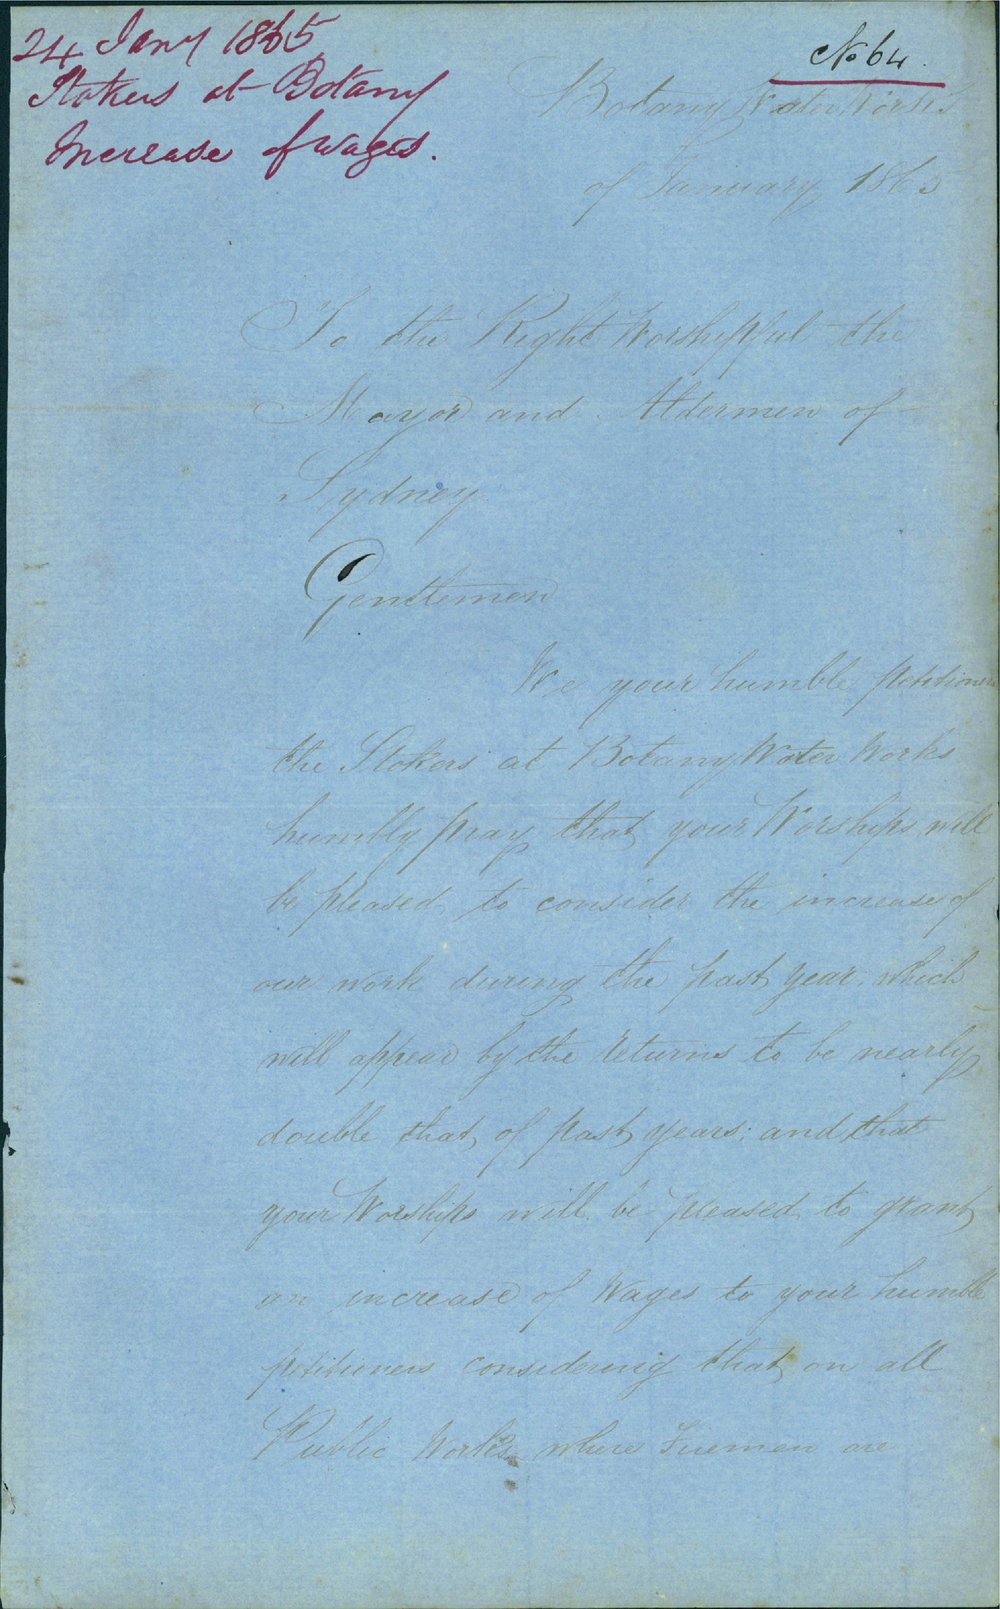 24 Jany 1865
Stokers at Botany
Increase of wages.
No 64.
Botany Water Works
of January 1865
To the Right Worshipful the
Mayor and Aldermen of
Sydney
Gentlemen
We your humble petitioners
the Stokers at Botany Water Works
humbly pray that your Worships will
be pleased to consider the increase of
our work during the past year, which
will appear by the returns to be nearly
double that of past years; and that
your Worships will be pleased to grant
an increase of Wages to your humble
petitioners considering that on all
Public Works where Firemen are